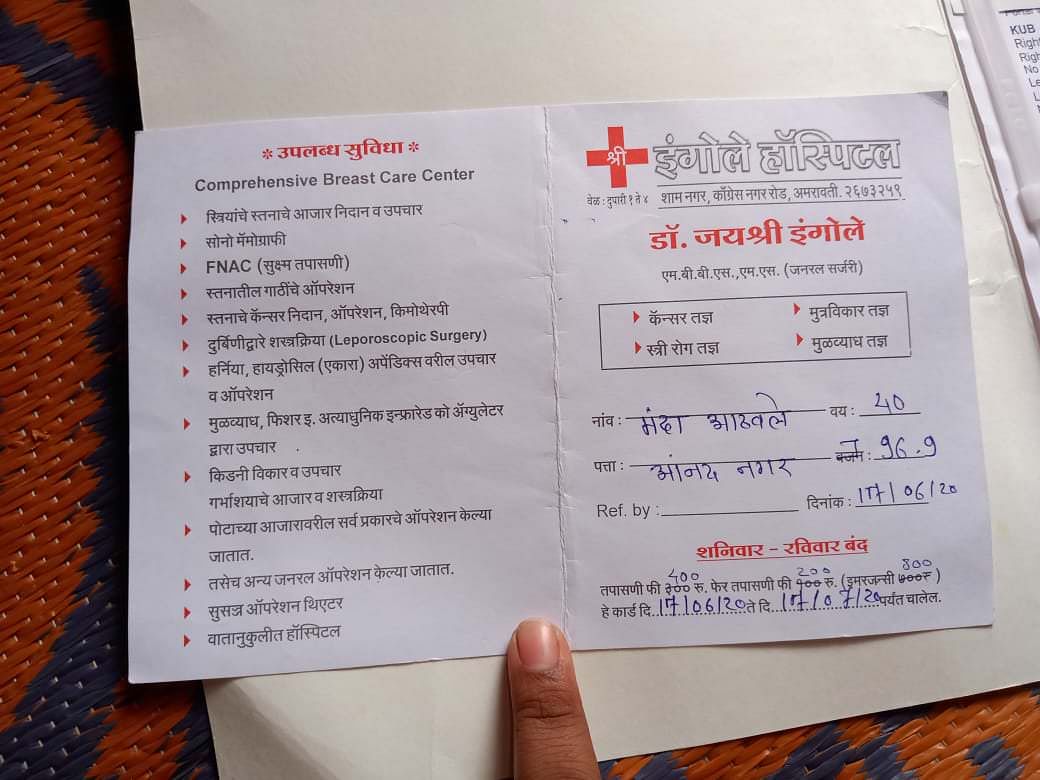 * उपलब्ध सुविधा *
Comprehensive Breast Care Center
स्त्रियांचे स्तनाचे आजार निदान व उपचार
सोनो मॅमोग्राफी
FNAC (सुक्ष्म तपासणी)
स्तनातील गाठींचे ऑपरेशन
स्तनाचे कॅन्सर निदान, ऑपरेशन, किमोथेरपी
दुर्बिणीद्वारे शस्त्रक्रिया (Leporoscopic Surgery)
हर्निया, हायड्रोसिल (एकारा) अपेंडिक्स वरील उपचार
व ऑपरेशन
मुळव्याध, फिशर इ. अत्याधुनिक इन्फ्रारेड को ॲग्युलेटर
द्वारा उपचार
किडनी विकार व उपचार
गर्भाशयाचे आजार व शस्त्रक्रिया
पोटाच्या आजारावरील सर्व प्रकारचे ऑपरेशन केल्या
जातात.
तसेच अन्य जनरल ऑपरेशन केल्या जातात.
सुसज्ज ऑपरेशन थिएटर
वातानुकुलीत हॉस्पिटल
श्री इंगोले हॉस्पिटल
वेळ : दुपारी १ ते ४ शाम नगर, काँग्रेस नगर रोड, अमरावती. २६७३२५९.
डॉ. जयश्री इंगोले
एम.बी.बी.एस.,एम.एस. (जनरल सर्जरी)
कॅन्सर तज्ञ मुत्रविकार तज्ञ
स्त्री रोग तज्ञ मुळव्याध तज्ञ
नांव : मंदा आठवले वय : 40
पत्ता : आंनद नगर वजन : 96.9
Ref. by : दिनांक : 17/06/20
शनिवार - रविवार बंद
400 200 800
तपासणी फी ३०० रु. फेर तपासणी फी १०० रु. (इमरजन्सी ७००रु )
हे कार्ड दि. 17/06/20 ते दि. 17/07/20 पर्यंत चालेल.
KUB
Right
Righ
No
Le